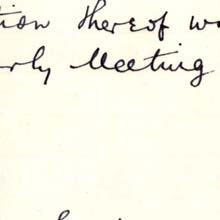 tion thereof w
rly Meeting